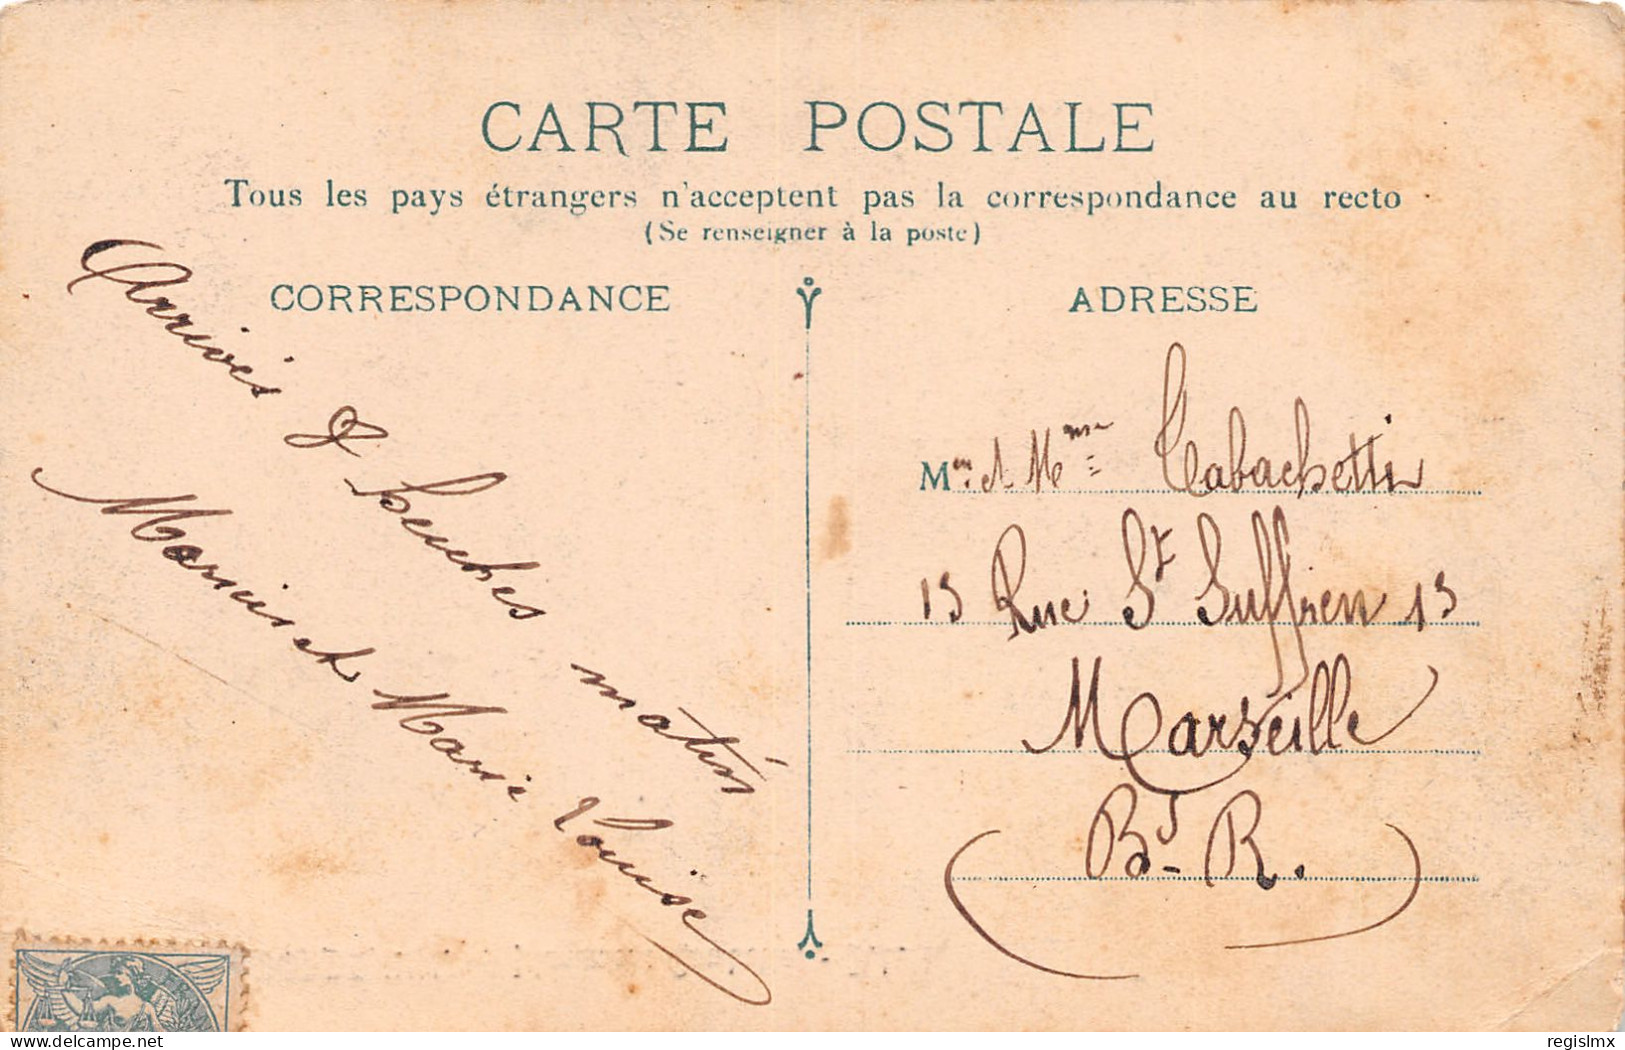 CARTE POSTALE
Tous les pays étrangers n'acceptent pas la correspondance au recto
(Se renseigner à la poste)
CORRESPONDANCE
ADRESSE
Arrivés 8 heures matin
Marius et Marie Louise
Mr et Mme Tabachetti
13 Rue St Suffren 13
Marseille
(Bs-R.)
delcampe.net
regislmx